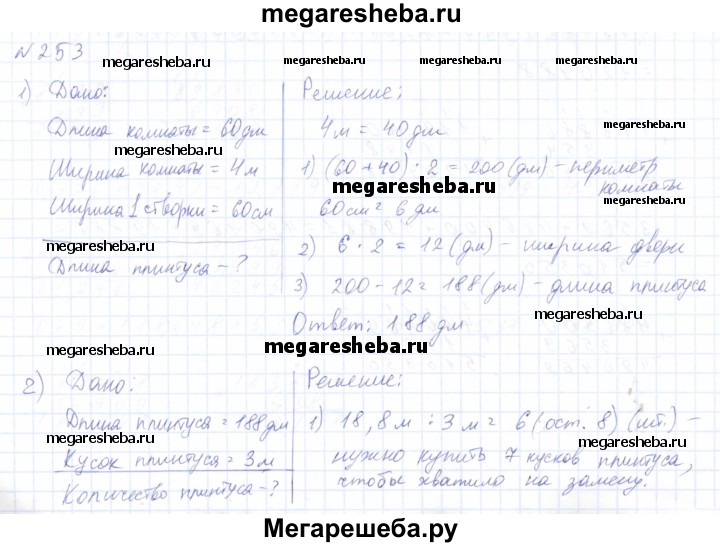 megaresheba.ru
№ 253
megaresheba.ru
megaresheba.ru
megaresheba.ru
1) Дано:
Длина комнаты = 60 дм
Ширина комнаты = 4 м
Ширина 1 створки = 60 см
Длина плинтуса - ?
megaresheba.ru
megaresheba.ru
Решение:
4 м = 40 дм
1) (60 + 40) · 2 = 200 (дм) - периметр
комнаты
60 см = 6 дм
2) 6 · 2 = 12 (дм) - ширина двери
3) 200 - 12 = 188 (дм) - длина плинтуса
Ответ: 188 дм
megaresheba.ru
megaresheba.ru
megaresheba.ru
megaresheba.ru
megaresheba.ru
megaresheba.ru
2) Дано:
Длина плинтуса = 188 дм
Кусок плинтуса = 3 м
Количество плинтуса - ?
megaresheba.ru
megaresheba.ru
Решение:
1) 18,8 м : 3 м = 6 (ост. 8) (шт.) -
нужно купить 7 кусков плинтуса,
чтобы хватило на замену.
megaresheba.ru
megaresheba.ru
Мегарешеба.ру